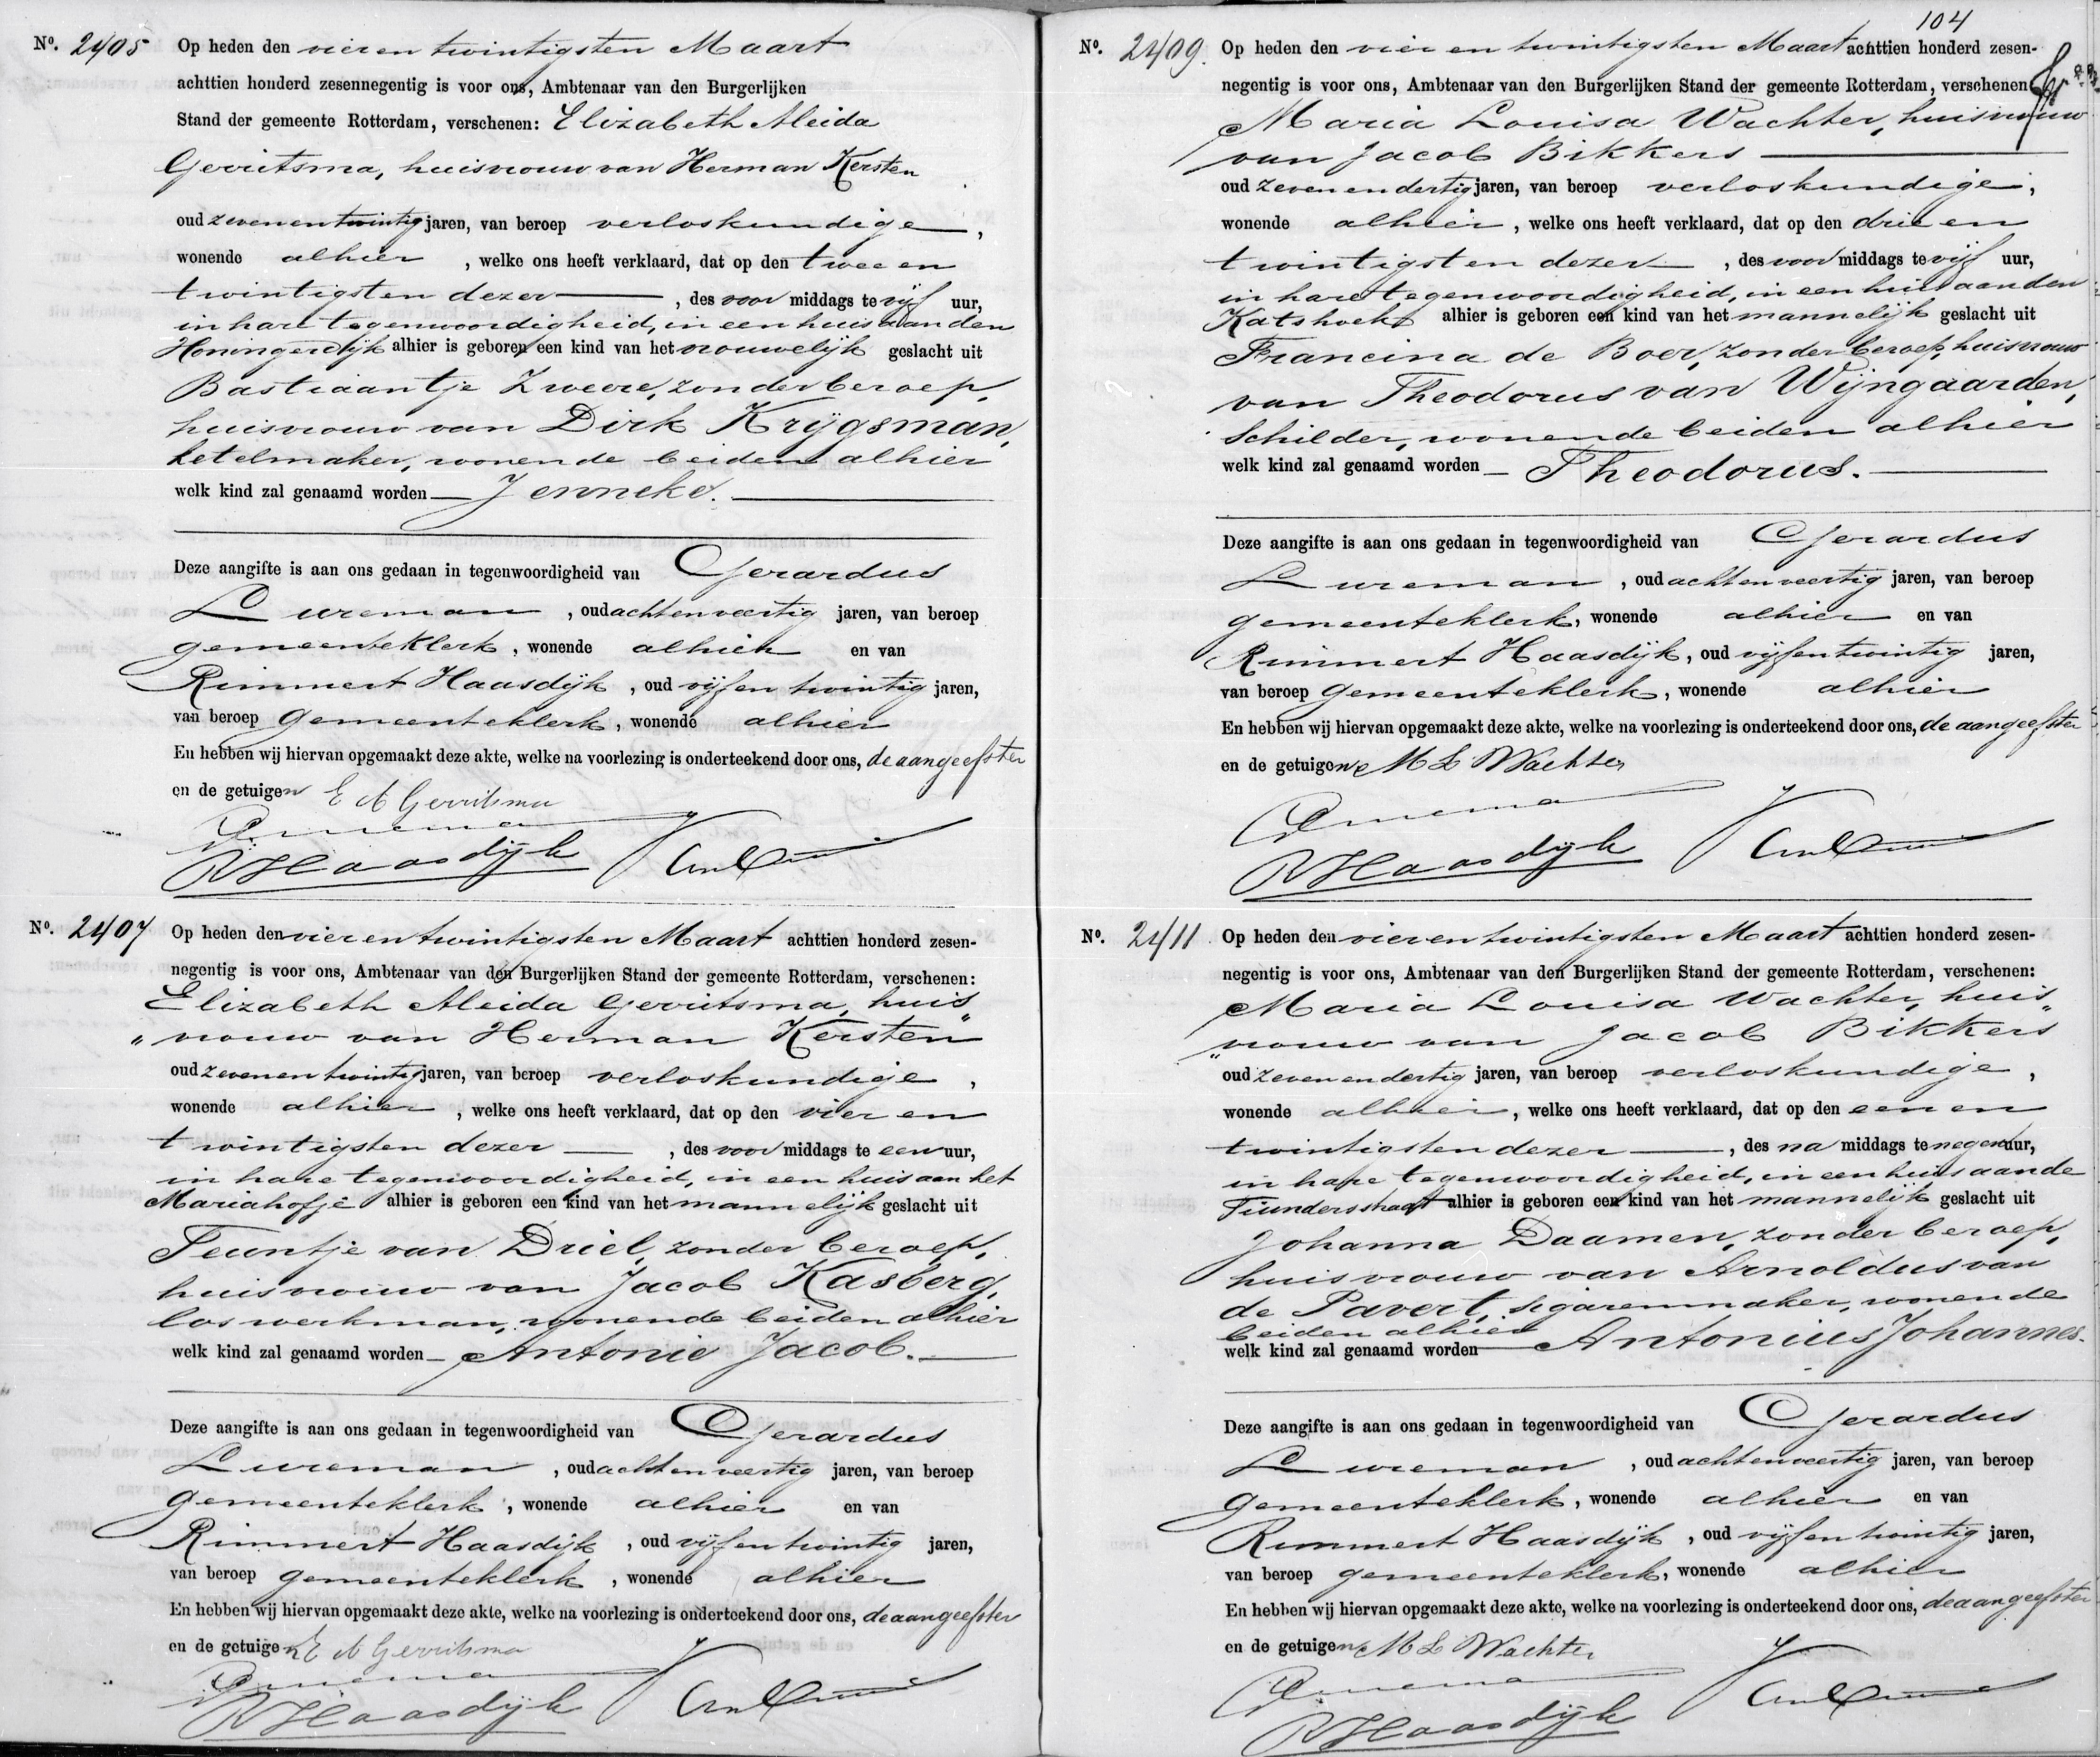 Nº. 2405 Op heden den vier en twintigsten Maart
achttien honderd zesennegentig is voor ons, Ambtenaar van den Burgerlijken
Stand der gemeente Rotterdam, verschenen: Elizabeth Aleida
Gerritsma, huisvrouw van Herman Kersten
oud zevenentwintig jaren, van beroep verloskundige,
wonende alhier, welke ons heeft verklaard, dat op den twee en
twintigsten dezer, des voor middags te vijf uur,
in hare tegenwoordigheid, in een huis aan den
Honingerdijk alhier is geboren een kind van het vrouwelijk geslacht uit
Bastiaantje Zweere, zonder beroep,
huisvrouw van Dirk Krijgsman,
ketelmaker, wonende beiden alhier
welk kind zal genaamd worden Jenneke.
Deze aangifte is aan ons gedaan in tegenwoordigheid van Gerardus
Lureman, oud achtenveertig jaren, van beroep
gemeenteklerk, wonende alhier en van
Rimmert Haasdijk, oud vijfentwintig jaren,
van beroep gemeenteklerk, wonende alhier
En hebben wij hiervan opgemaakt deze akte, welke na voorlezing is onderteekend door ons, de aangeefster
en de getuigen E A Gerritsma
RHaasdijk
Nº. 2407 Op heden den vier en twintigsten Maart achttien honderd zesen-
negentig is voor ons, Ambtenaar van den Burgerlijken Stand der gemeente Rotterdam, verschenen:
Elizabeth Aleida Gerritsma, huis„
„vrouw van Herman Kersten
oud zevenentwintig jaren, van beroep verloskundige,
wonende alhier, welke ons heeft verklaard, dat op den vier en
twintigsten dezer, des voor middags te een uur,
in hare tegenwoordigheid, in een huis aan het
Mariahofje alhier is geboren een kind van het mannelijk geslacht uit
Teuntje van Driel, zonder beroep,
huisvrouw van Jacob Kasberg,
los werkman, wonende beiden alhier
welk kind zal genaamd worden Antonie Jacob.
Deze aangifte is aan ons gedaan in tegenwoordigheid van Gerardus
Lureman, oud achtenveertig jaren, van beroep
gemeenteklerk, wonende alhier en van
Rimmert Haasdijk, oud vijfentwintig jaren,
van beroep gemeenteklerk, wonende alhier
En hebben wij hiervan opgemaakt deze akte, welke na voorlezing is onderteekend door ons, de aangeefster
en de getuigen E A Gerritsma
RHaasdijk
104
Nº. 2409. Op heden den vier en twintigsten Maart achttien honderd zesen-
negentig is voor ons, Ambtenaar van den Burgerlijken Stand der gemeente Rotterdam, verschenen
Maria Louisa Wachter, huisvrouw
van Jacob Bikkers
oud zevenendertig jaren, van beroep verloskundige,
wonende alhier, welke ons heeft verklaard, dat op den drie en
twintigsten dezer, des voor middags te vijf uur,
in hare tegenwoordigheid, in een huis aan den
Katshoek alhier is geboren een kind van het mannelijk geslacht uit
Francina de Boer, zonder beroep, huisvrouw
van Theodorus van Wijngaarden,
schilder, wonende beiden alhier
welk kind zal genaamd worden Theodorus.
Deze aangifte is aan ons gedaan in tegenwoordigheid van Gerardus
Lureman, oud achtenveertig jaren, van beroep
gemeenteklerk, wonende alhier en van
Rimmert Haasdijk, oud vijfentwintig jaren,
van beroep gemeenteklerk, wonende alhier
En hebben wij hiervan opgemaakt deze akte, welke na voorlezing is onderteekend door ons, de aangeefster
en de getuigen M L Wachter
RHaasdijk
Nº. 2411. Op heden den vier en twintigsten Maart achttien honderd zesen-
negentig is voor ons, Ambtenaar van den Burgerlijken Stand der gemeente Rotterdam, verschenen:
Maria Louisa Wachter, huis„
„vrouw van Jacob Bikkers
oud zevenendertig jaren, van beroep verloskundige,
wonende alhier, welke ons heeft verklaard, dat op den een en
twintigsten dezer, des na middags te negen uur,
in hare tegenwoordigheid, in een huis aan de
alhier is geboren een kind van het mannelijk geslacht uit
Johanna Daamen, zonder beroep,
huisvrouw van Arnoldus van
de Pavert, sigarenmaker, wonende
beiden alhier
welk kind zal genaamd worden Antonius Johannes.
Deze aangifte is aan ons gedaan in tegenwoordigheid van Gerardus
Lureman, oud achtenveertig jaren, van beroep
gemeenteklerk, wonende alhier en van
Rimmert Haasdijk, oud vijfentwintig jaren,
van beroep gemeenteklerk, wonende alhier
En hebben wij hiervan opgemaakt deze akte, welke na voorlezing is onderteekend door ons, de aangeefster
en de getuigen M L Wachter
RHaasdijk